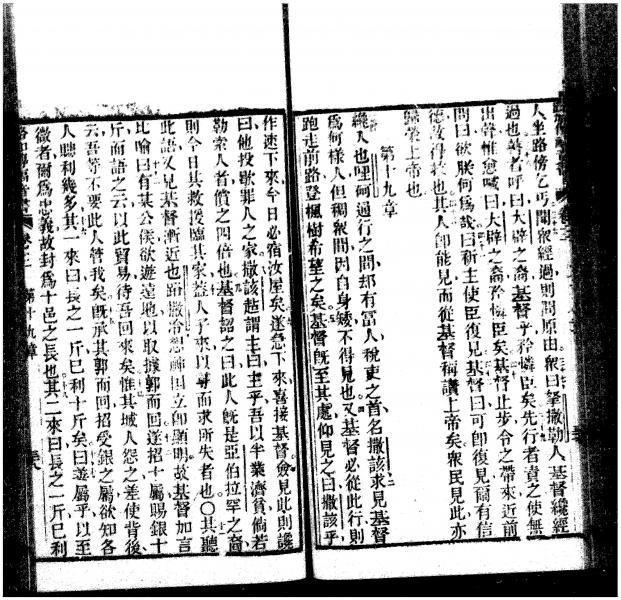 人坐路傍乞丐聞衆經過則問原由衆曰拏撒勒人基督纔經
過也瞽者呼曰大辟之裔基督乎矜憐臣矣先行者責之使無
出聲惟愈喊曰大辟之裔矜憐臣矣基督止步令之帶來近前
問曰欲朕何爲哉曰新主使臣復見基督曰可卽復見爾有信
德救得救也其人卽能見而從基督稱讚上帝矣衆民見此亦
歸榮上帝也
第十九章
纔入也哩硪過行之間却有富人稅吏之首名撒該求見基督
爲何樣人但稠衆間因自身矮不得見也又基督必從此行則
跑走前路登楓樹希望之矣基督旣至其處仰見之曰撒該乎
作速下來今日必宿汝屋矣遂急下來喜接基督僉見此則讒
曰他投歇罪人之家撒該起謂主曰主乎吾以半業濟貧倘若
勒索人者償之四倍也基督認之曰此人旣是亞伯拉罕之裔
則今日其救援臨其家葢人子來以尋而求所失者也〇其聽
此語又見基督漸近也路撒冷想神國立卽顯明故基督加言
比喻曰有某公侯欲遊遠地以取據郭而回遂招十屬賜銀十
斤而語之云以此貿易待吾回來矣惟其城人怨之差使背後
云吾等不要此人管我矣旣承其郭而回招受銀之屬欲知各
人聽利幾多其一來曰長之一斤已利十斤矣曰善屬乎以至
微者爾爲忠義故封爲十邑之長也其二來曰長之一斤已利
第十九章